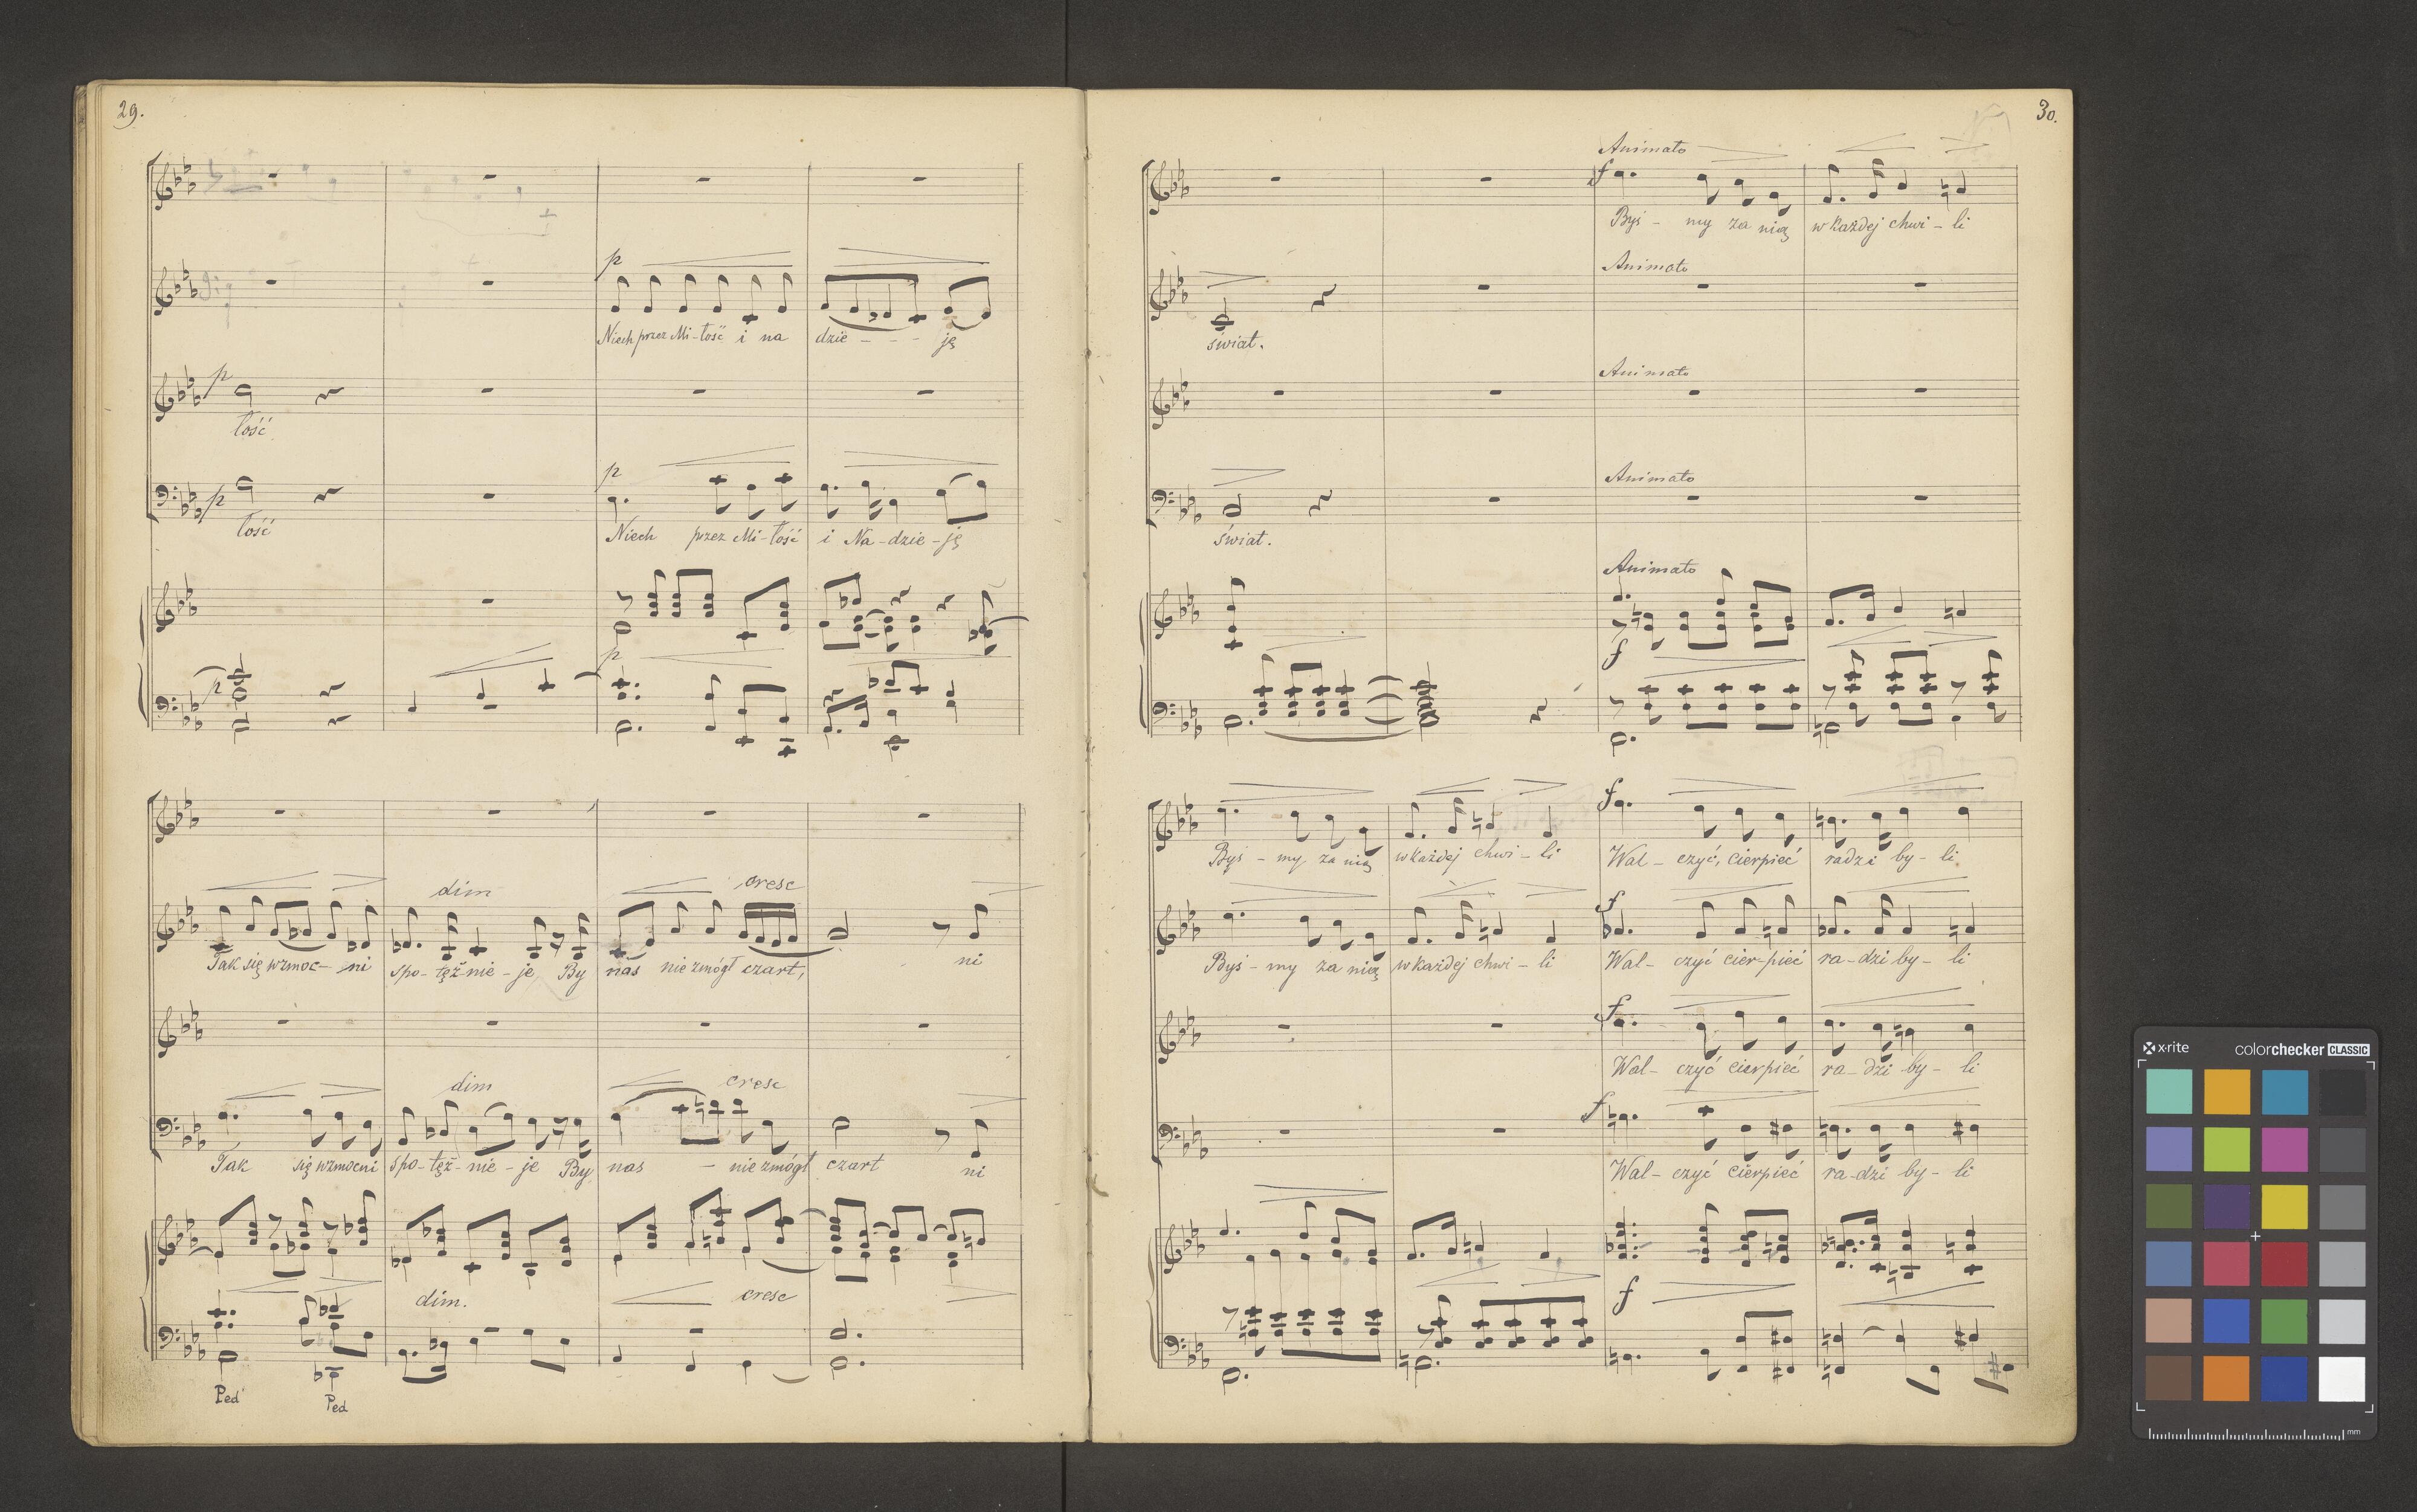 29.
p
Niech przez Mi-łość i na dzie - - - ję
p
łość
p p
łość Niech przez Mi-łość i Na-dzie-ję
p
p
cresc
dim
Tak się wzmoc- ni spo-tęż-nie-je By nas nie zmógł czart, ni
dim cresc
Tak się wzmocni spo-tęż-nie-je By nas - nie zmógł czart ni
dim. cresc
Ped Ped
30.
Animato
f
Byś - my za nią w każdej chwi - li
Animato
świat.
Animato
Animato
świat.
Animato
f
f
Byś - my za nią w każdej chwi - li Wal - czyć, cierpieć radzi by - li
f
Byś - my za nią w każdej chwi - li Wal - czyć cier-pieć ra-dzi by - li
f
Wal - czyć cierpieć ra-dzi by - li
f
Wal - czyć cierpieć ra-dzi by - li
f
x-rite colorchecker CLASSIC
mm